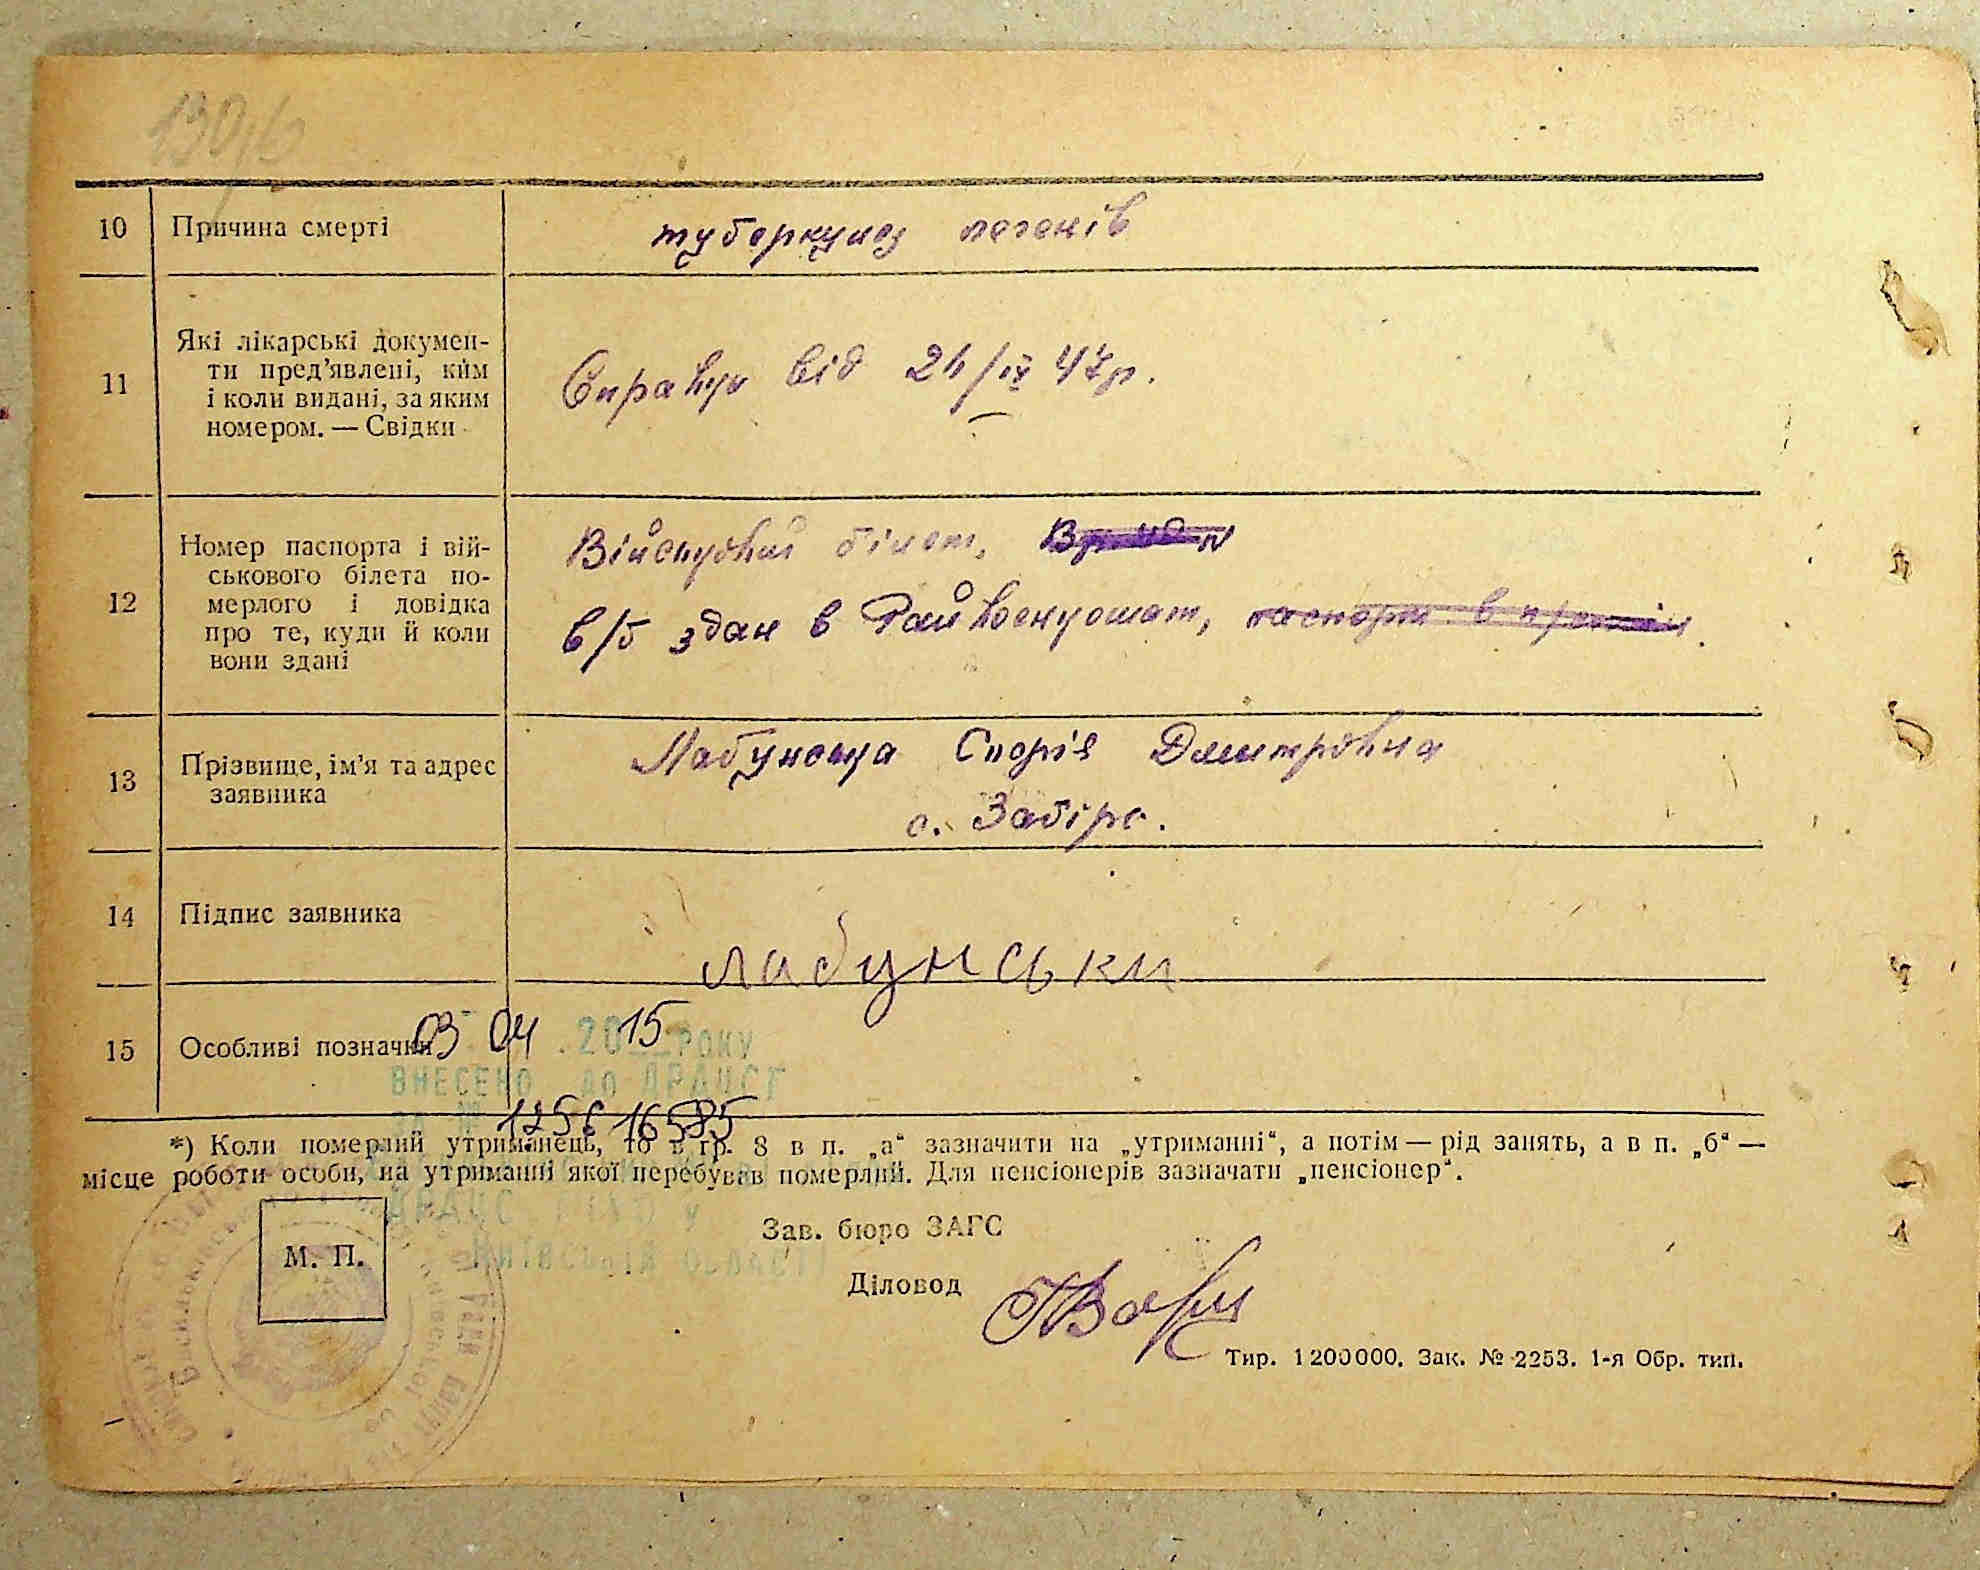 10 Причина смерті туберкульоз легенів
11 Які лікарські докумен-
ти пред’явлені, ким
і коли видані, за яким
номером. — Свідки
від 24/IX 47р.
12 Номер паспорта і вій-
ськового білета по-
мерлого і довідка
про те, куди й коли
вони здані
Військовий білет,
в/б здан в Райвоенкомат,
13 Прізвище, ім’я та адрес
заявника
Лабунська Дмитровна
с. Забірє.
14 Підпис заявника
лабунськи
15 Особливі позначки
03 04 . 2015 РОКУ
ВНЕСЕНО до ДРАЦСГ
*) Коли померлий утриманець, то в гр. 8 в п. „а“ зазначити на „утриманні“, а потім — рід занять, а в п. „б“ —
місце роботи особи, на утриманні якої перебував померлий. Для пенсіонерів зазначати „пенсіонер“.
М. П.
Зав. бюро ЗАГС
КИЇВСЬКІЙ ОБЛАСТІ
Діловод
Тир. 1200000. Зак. № 2253. 1-я Обр. тип.